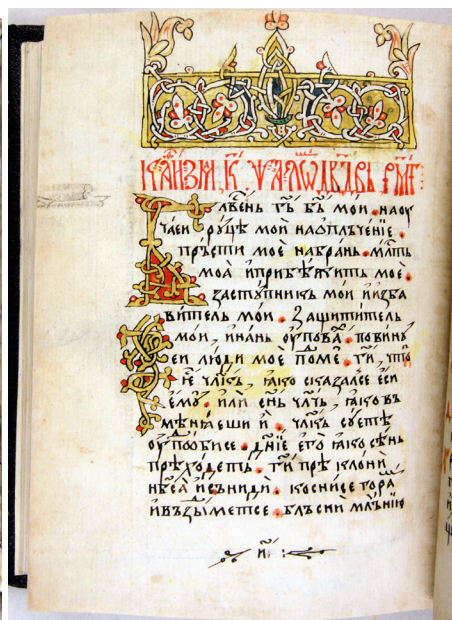 каѳизма к҃ ѱаломь дв҃двь рм҃г
Бл҃вень гь҃ бь҃ мои . наоу
чаеи руцѣ мои наопльченїе .
прьсти мое набрань . млⷭть
моа и прибѣжище мое .
заступникь мои и изба
витель мои . Защитител̑ь
мои , и нань оуповаⷯ . повину
еи люди мое по мне . гⷭи , что
е҆ чл҃кь , ꙗко сказалсе еси
ѥмоу . или сн҃ь чл҃чь , ꙗко вь
мѣнꙗеши и . чл҃кь соуетѣ
оуподобисе . дн҃їе его ꙗко сѣнь
прѣходеть . гⷭи прѣклони
нб҃са и сьниди . коснисе гора
и вьздыметсе . бльсни мльнїю
и҃ :